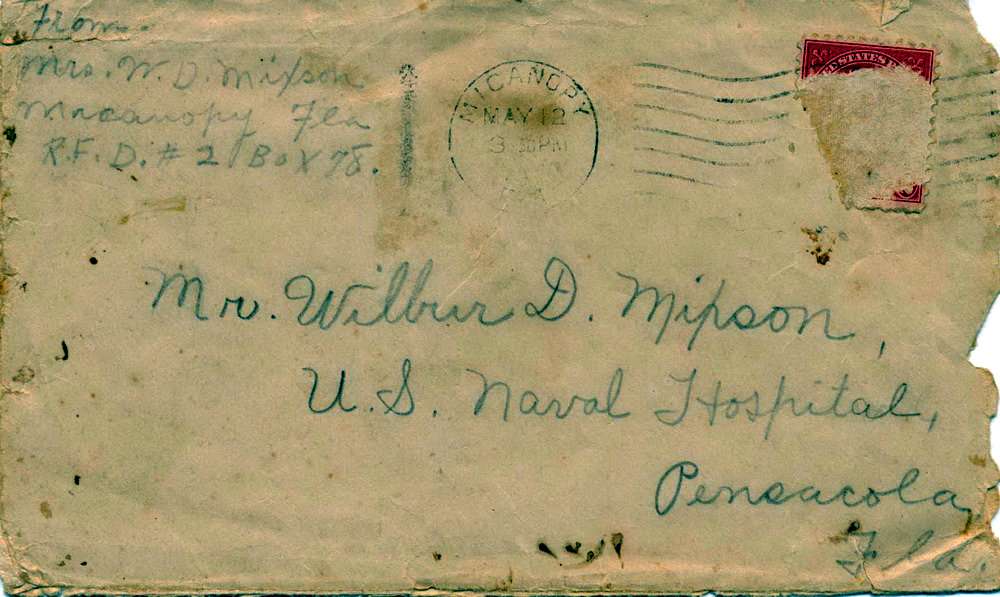 From.
Mrs. W. D. Mixson
Macanopy Fla
R.F.D. # 2 Box 78.
MICANOPY
MAY 12
3 30 PM
STATES
Mr. Wilbur D. Mixson,
U.S. Naval Hospital,
Pensacola,
Fla.